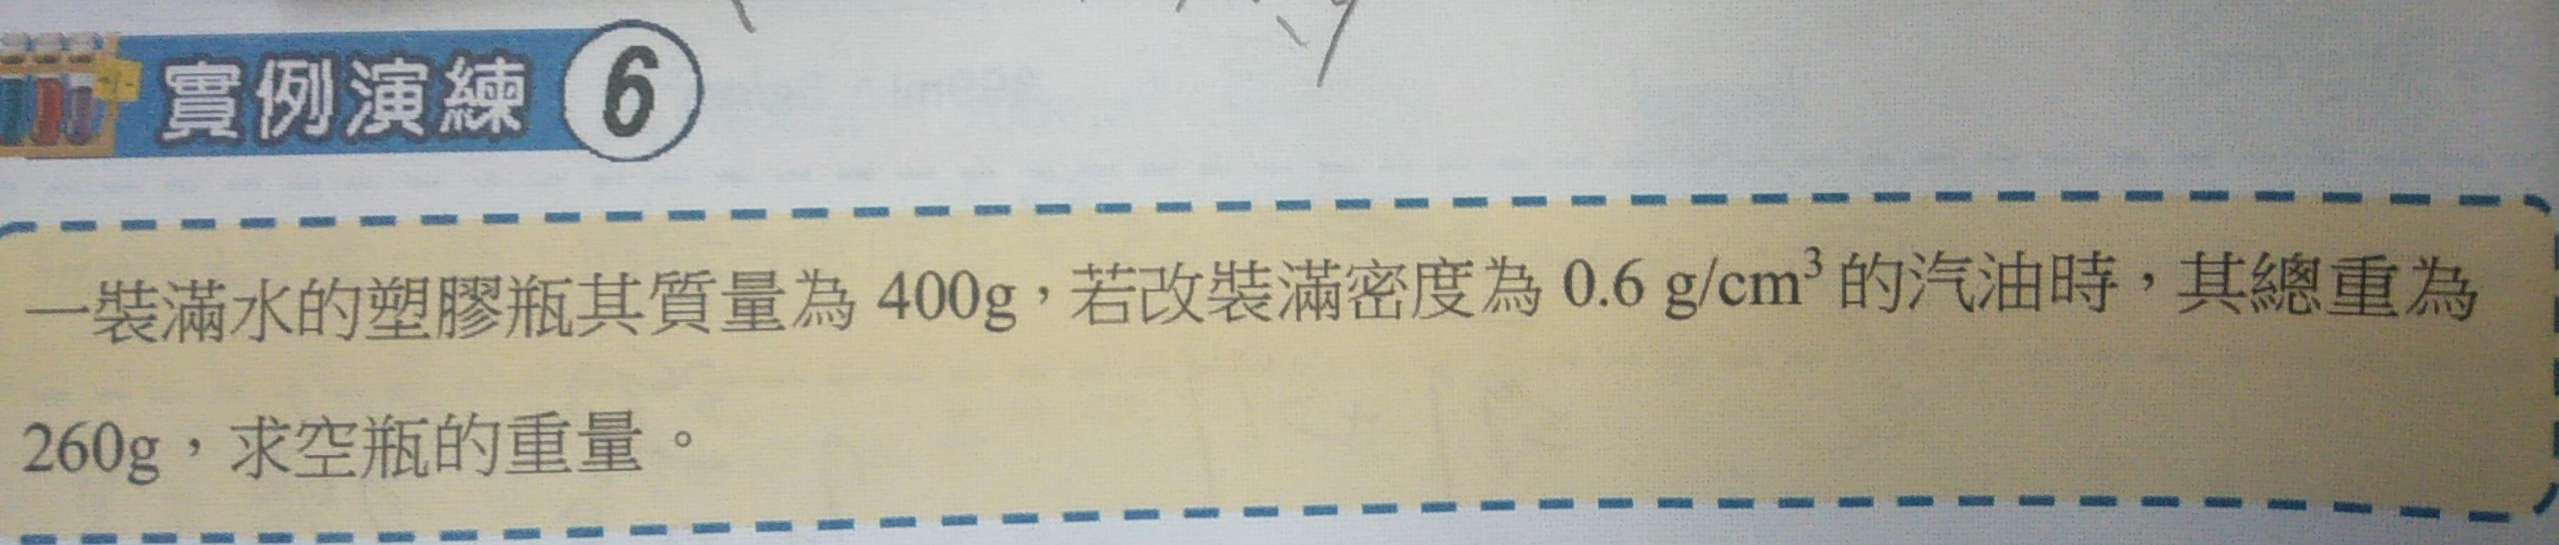 實例演練 6
一裝滿水的塑膠瓶其質量為 400g，若改裝滿密度為 0.6 g/cm³ 的汽油時，其總重為
260g，求空瓶的重量。